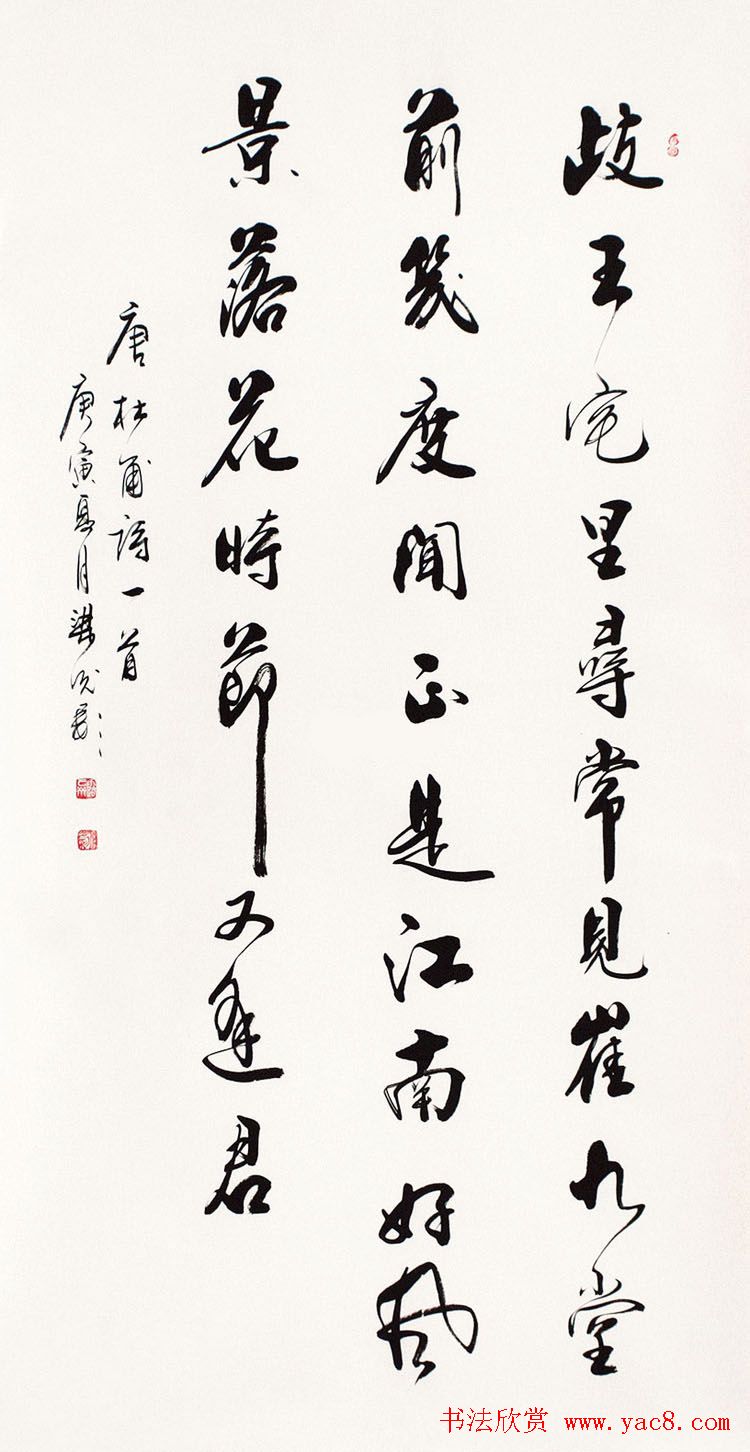 歧王宅里尋常見崔九堂
前幾度聞正是江南好風
景落花時節又逢君
唐杜甫詩一首
庚寅夏月
书法欣赏 www.yac8.com